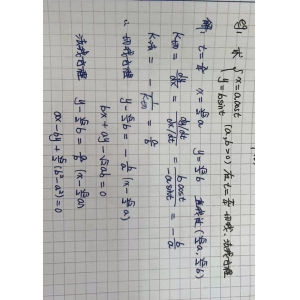 例1 求 {x=acost y=bsint (a,b>0) 在t=π/4 切线、法线方程
解: t=π/4 x=√2/2 a y=√2/2 b 过 (√2/2 a, √2/2 b)
k切 = dy/dx = (dy/dt)/(dx/dt) = bcost/-asint = -b/a
k法 = -1/k切 = a/b
∴ 切线方程 y-√2/2 b = -b/a (x-√2/2 a)
bx+ay-√2ab=0
法线方程 y-√2/2 b = a/b (x-√2/2 a)
ax-by+√2/2 (b²-a²)=0